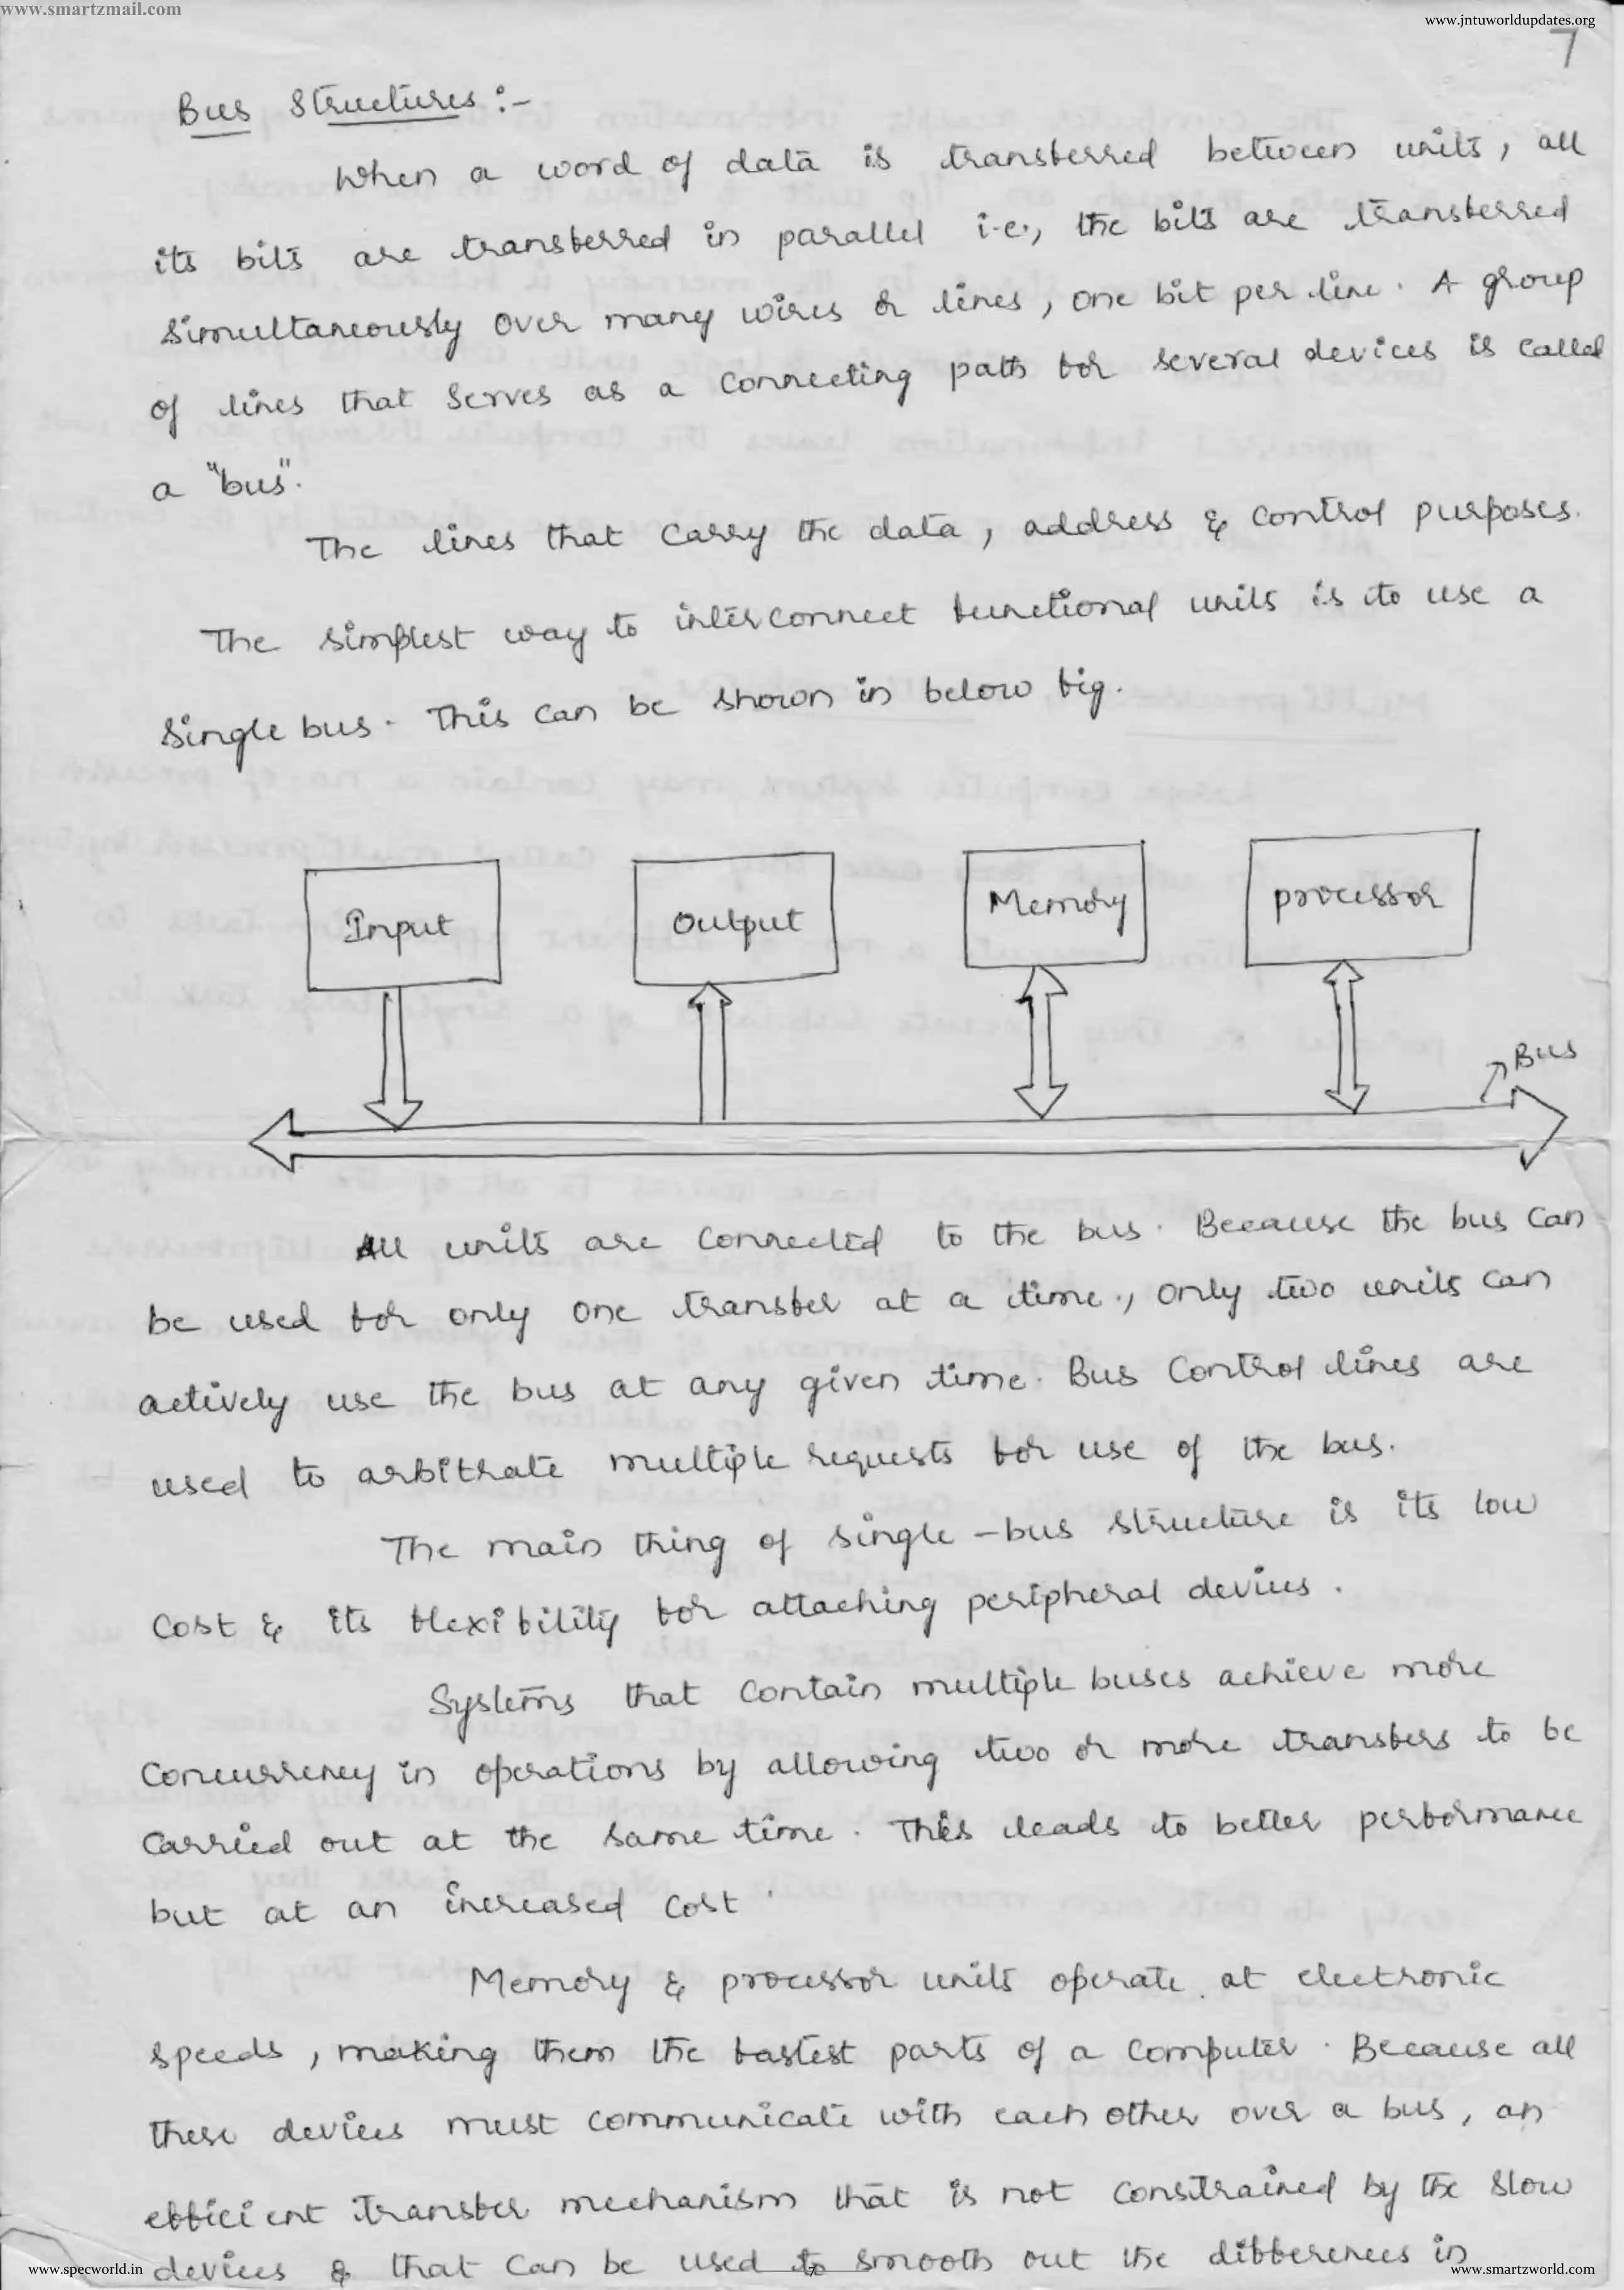 www.smartzmail.com
www.jntuworldupdates.org
7
Bus Structures :-
When a word of data is transferred between units, all
its bits are transferred in parallel i.e., the bits are transferred
simultaneously over many wires or lines, one bit per line. A group
of lines that serves as a connecting path for several devices is called
a "bus".
The lines that carry the data, address & control purposes.
The simplest way to interconnect functional units is to use a
single bus. This can be shown in below fig.
Input
Output
Memory
processor
Bus
All units are connected to the bus. Because the bus can
be used for only one transfer at a time., only two units can
actively use the bus at any given time. Bus control lines are
used to arbitrate multiple requests for use of the bus.
The main thing of single-bus structure is its low
cost & its flexibility for attaching peripheral devices.
Systems that contain multiple buses achieve more
concurrency in operations by allowing two or more transfers to be
carried out at the same time. This leads to better performance
but at an increased cost.
Memory & processor units operate at electronic
speeds, making them the fastest parts of a computer. Because all
these devices must communicate with each other over a bus, an
efficient transfer mechanism that is not constrained by the slow
devices & that can be used to smooth out the differences in
www.specworld.in
www.smartzworld.com